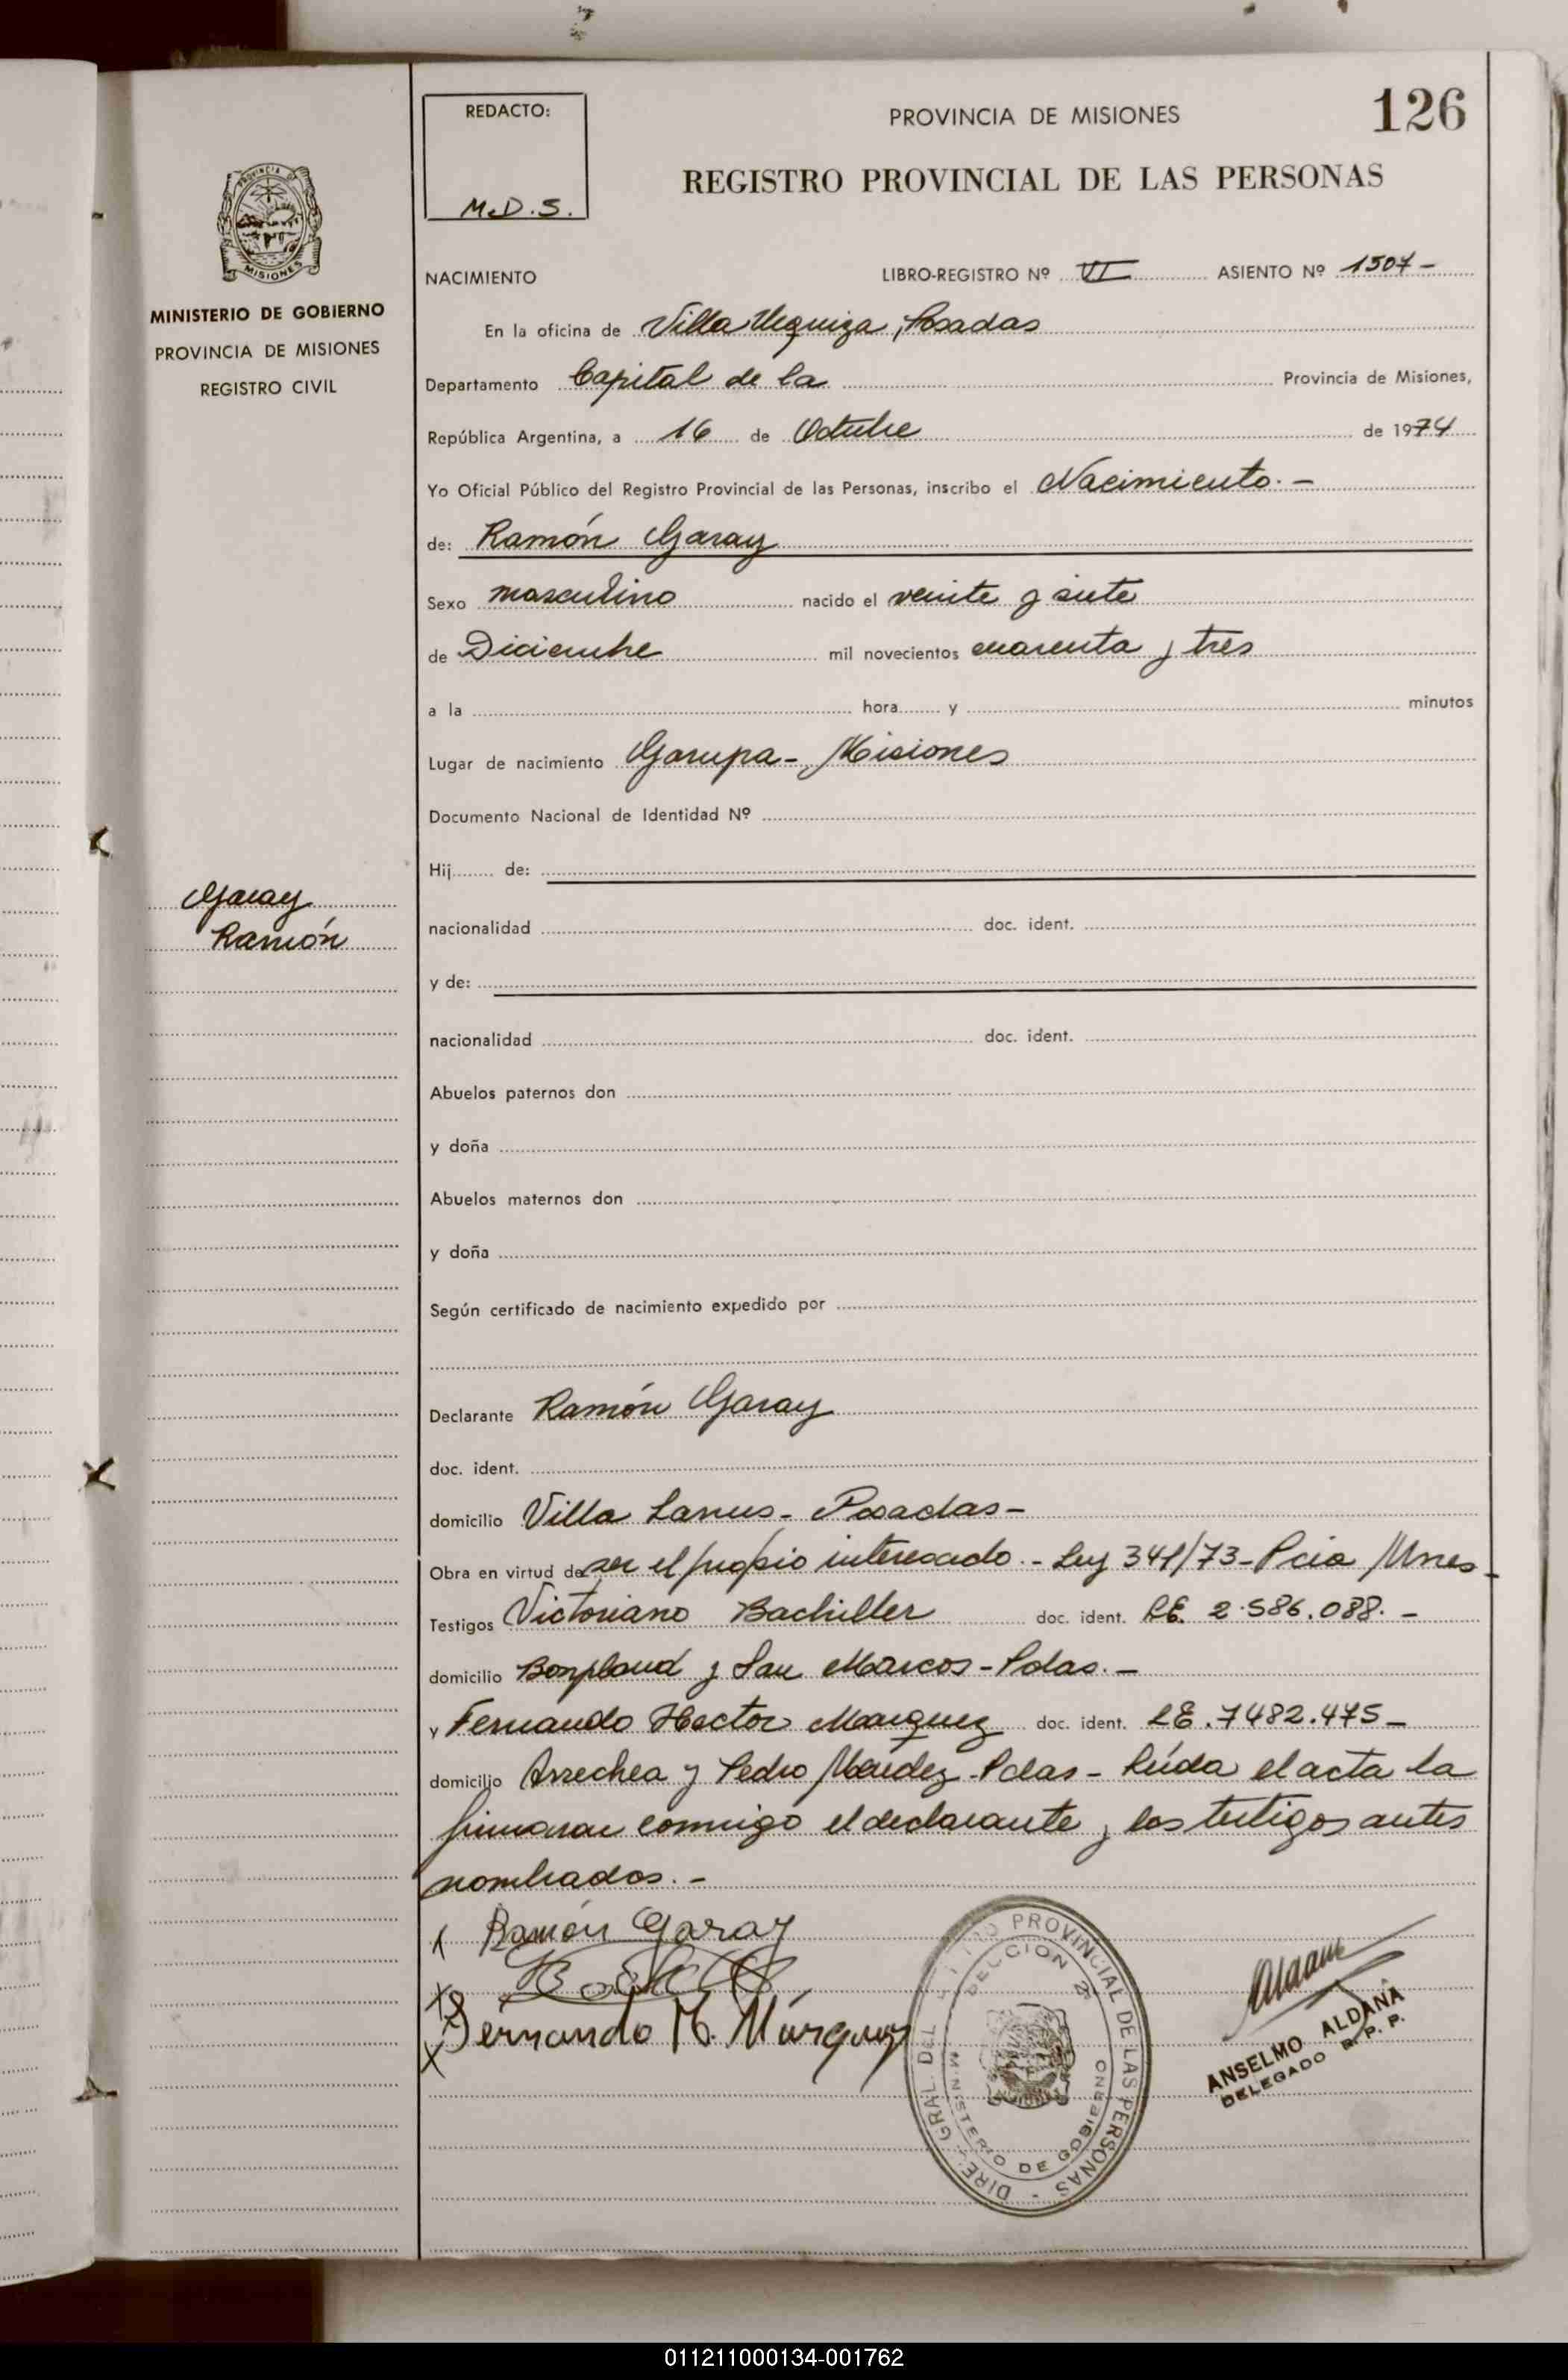 126
REDACTO:
M.D.S.
PROVINCIA DE MISIONES
REGISTRO PROVINCIAL DE LAS PERSONAS
PROVINCIA DE
MISIONES
MINISTERIO DE GOBIERNO
PROVINCIA DE MISIONES
REGISTRO CIVIL
NACIMIENTO LIBRO-REGISTRO Nº VI ASIENTO Nº 1507-
En la oficina de Villa Urquiza, Posadas
Departamento Capital de la Provincia de Misiones,
República Argentina, a 16 de Octubre de 1974
Yo Oficial Público del Registro Provincial de las Personas, inscribo el Nacimiento.-
de: Ramón Garay
Sexo masculino nacido el veinte y siete
de Diciembre mil novecientos cuarenta y tres
a la hora y minutos
Lugar de nacimiento Garupa-Misiones
Documento Nacional de Identidad Nº
Hij de:
Garay
Ramón
nacionalidad doc. ident.
y de:
nacionalidad doc. ident.
Abuelos paternos don
y doña
Abuelos maternos don
y doña
Según certificado de nacimiento expedido por
Declarante Ramón Garay
doc. ident.
domicilio Villa Lanus-Posadas-
Obra en virtud de ser el propio interesado.-Ley 341/73-Pcia Mnes-
Testigos Victoriano Bachiller doc. ident. LE. 2.586.088.-
domicilio Bonpland y San Marcos-Pdas.-
y Fernando Hector Marquez doc. ident. LE.7482.475-
domicilio Arrechea y Pedro Méndez-Pdas-Leída el acta la
firmaran conmigo el declarante y los testigos antes
nombrados.-
x Ramón Garay
x
x Fernando H. Márquez
DIRE. GRAL. DEL REGISTRO PROVINCIAL DE LAS PERSONAS -
SECCION 2ª
MINISTERIO DE GOBIERNO
ANSELMO ALDANA
DELEGADO R. P. P.
011211000134-001762